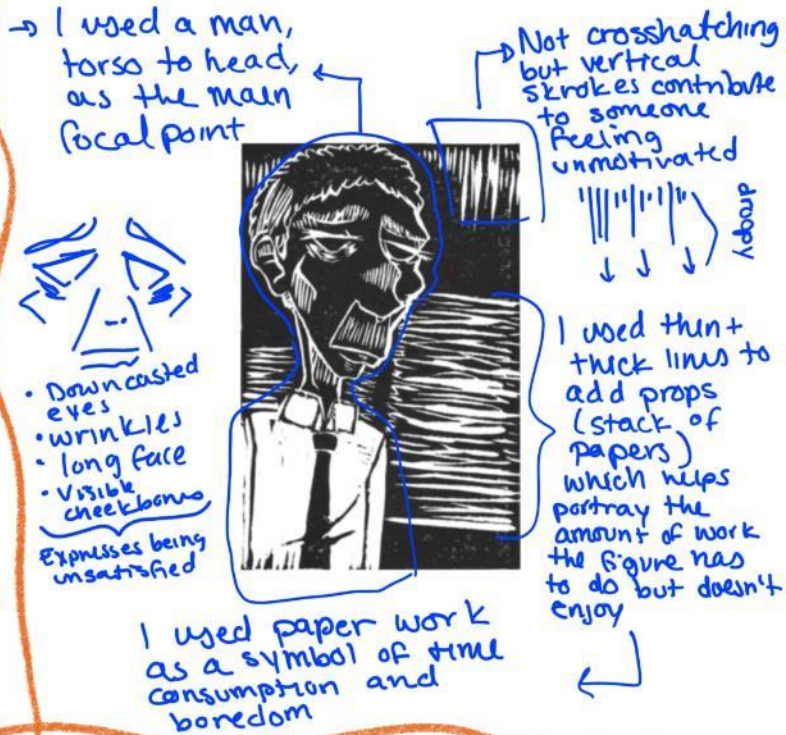 → I used a man,
torso to head,
as the main
focal point
Not crosshatching
but vertical
skrokes contribute
to someone
feeling
unmotivated
droopy
• Downcasted
eyes
• wrinkles
• long face
• visible
cheekbones
Expresses being
unsatisfied
I used thin +
thick lines to
add props
(stack of
papers)
which helps
portray the
amount of work
the figure has
to do but doesn't
enjoy
I used paper work
as a symbol of time
consumption and
boredom